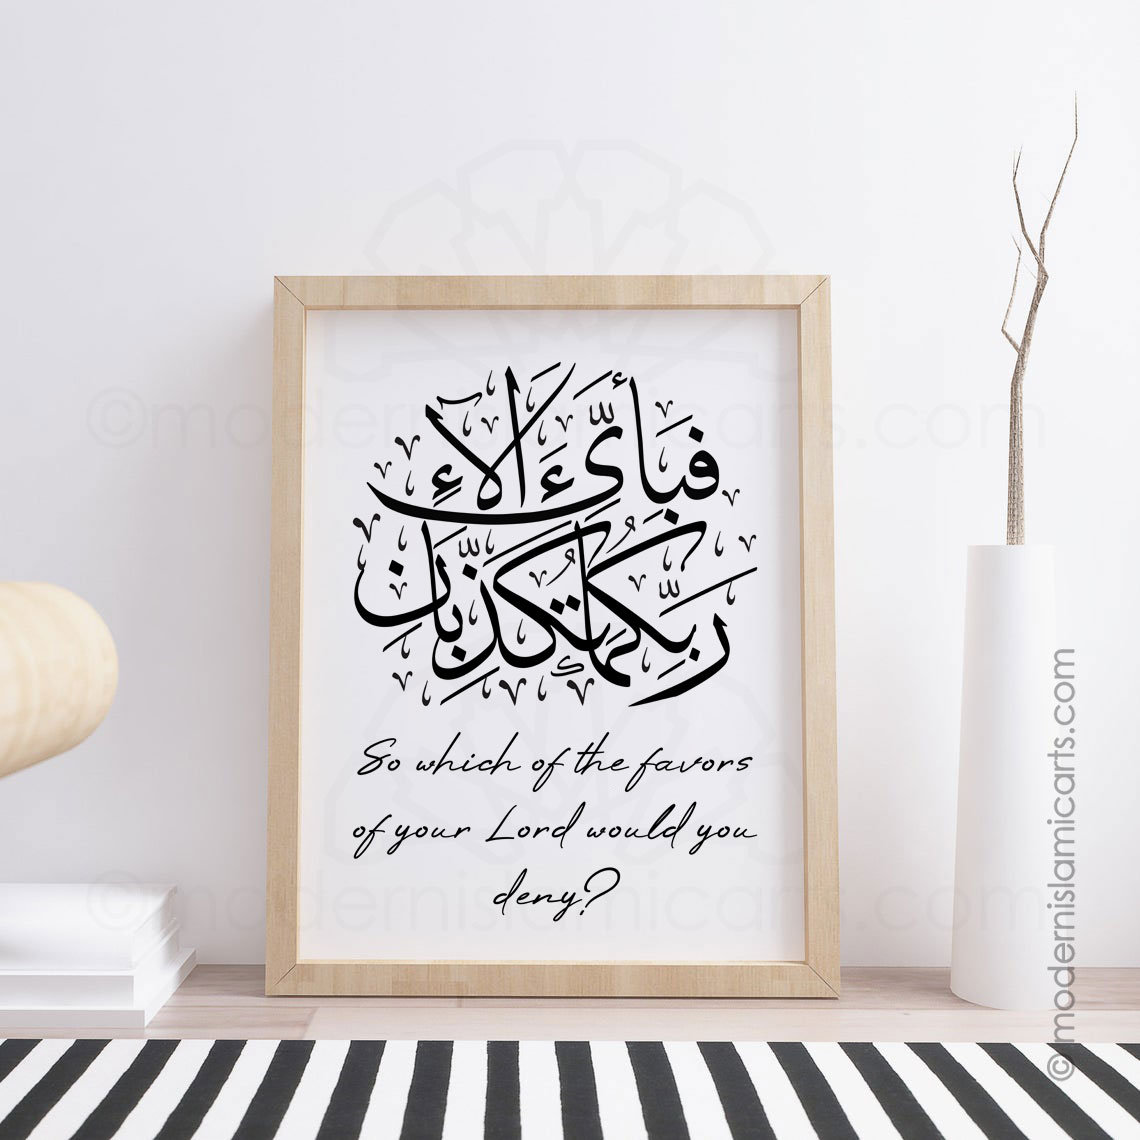 فَبِأَيِّ ءَالَآءِ
رَبِّكُمَا تُكَذِّبَانِ
So which of the favors
of your Lord would you
deny?
©modernislamicarts.com
©modernislamicarts.com
©modernislamicarts.com